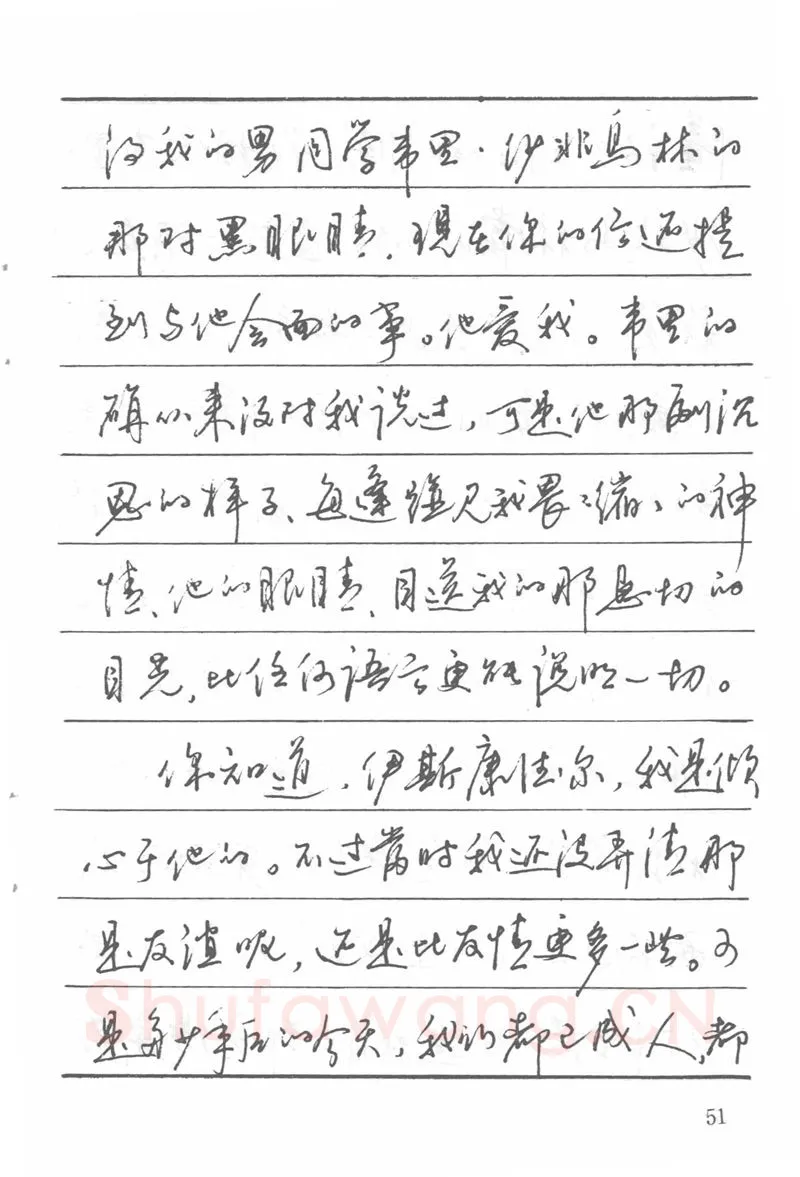 得我的男同学韦里·沙非乌林的
那对黑眼睛,现在你的信还提
到与他会面的事。他爱我。韦里的
确从来没对我谈过,可是他那副沉
思的样子、每逢碰见我畏畏缩缩的神
情、他的眼睛、目送我的那急切的
目光,比任何语言更能说明一切。
你知道,伊斯康德尔,我是倾
心于他的。不过当时我还没弄清那
是友谊呢,还是比友情更多一些。可
是多少年后的今天,我们都已成人,都
Shufawang.CN
51